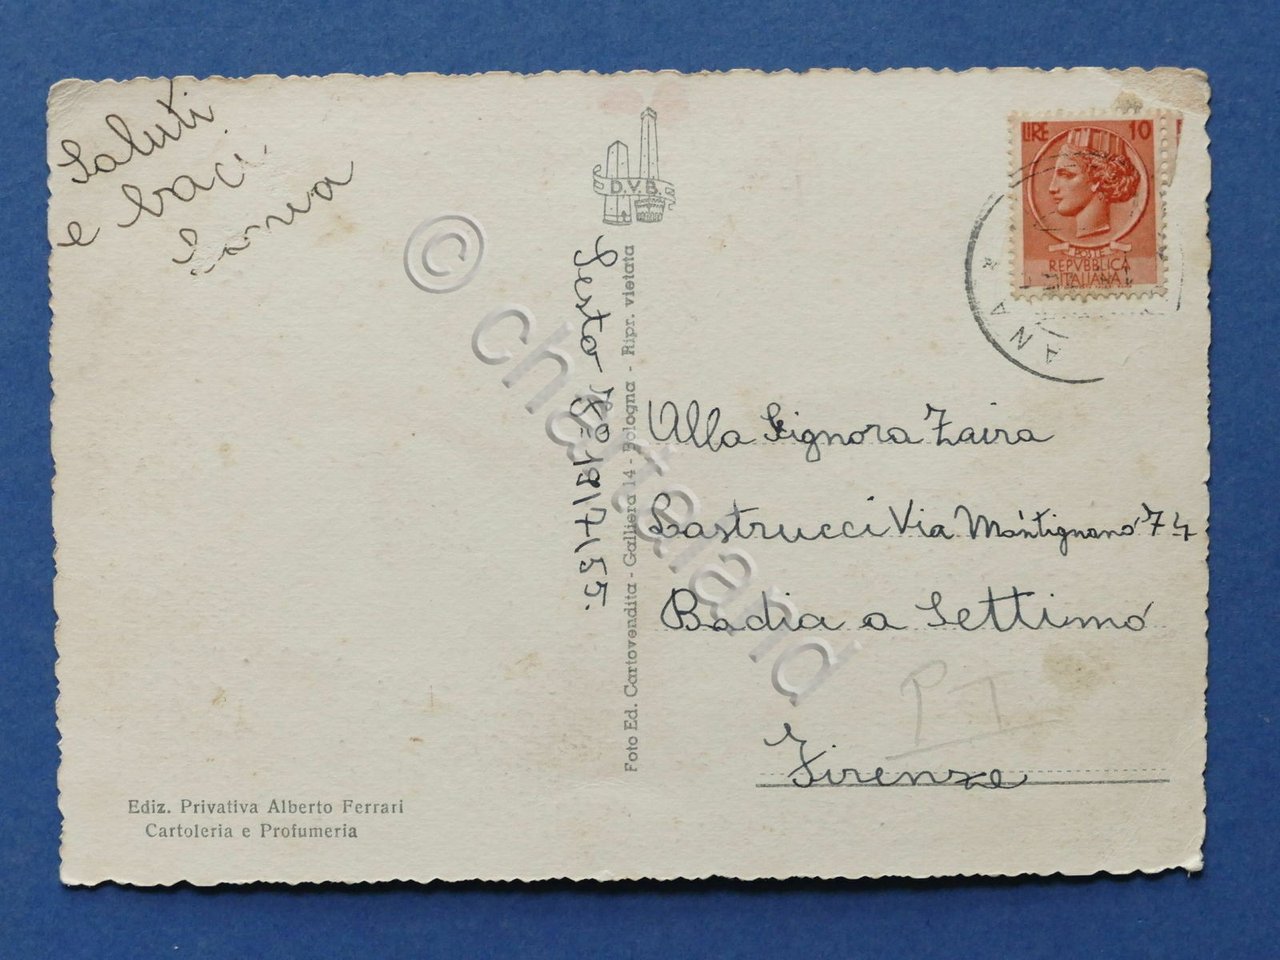 Saluti
e baci
D.V.B.
LIRE 10
POSTE
REPVBBLICA
ITALIANA
ANA *
Sesto 19/7/55.
Foto Ed. Cartovendita - Galliera 14 - Bologna - Ripr. vietata
Alla Signora Zaira
Lastrucci Via Montignano 74
Badia a Settimo
Firenze
PT
Ediz. Privativa Alberto Ferrari
Cartoleria e Profumeria
© charteland